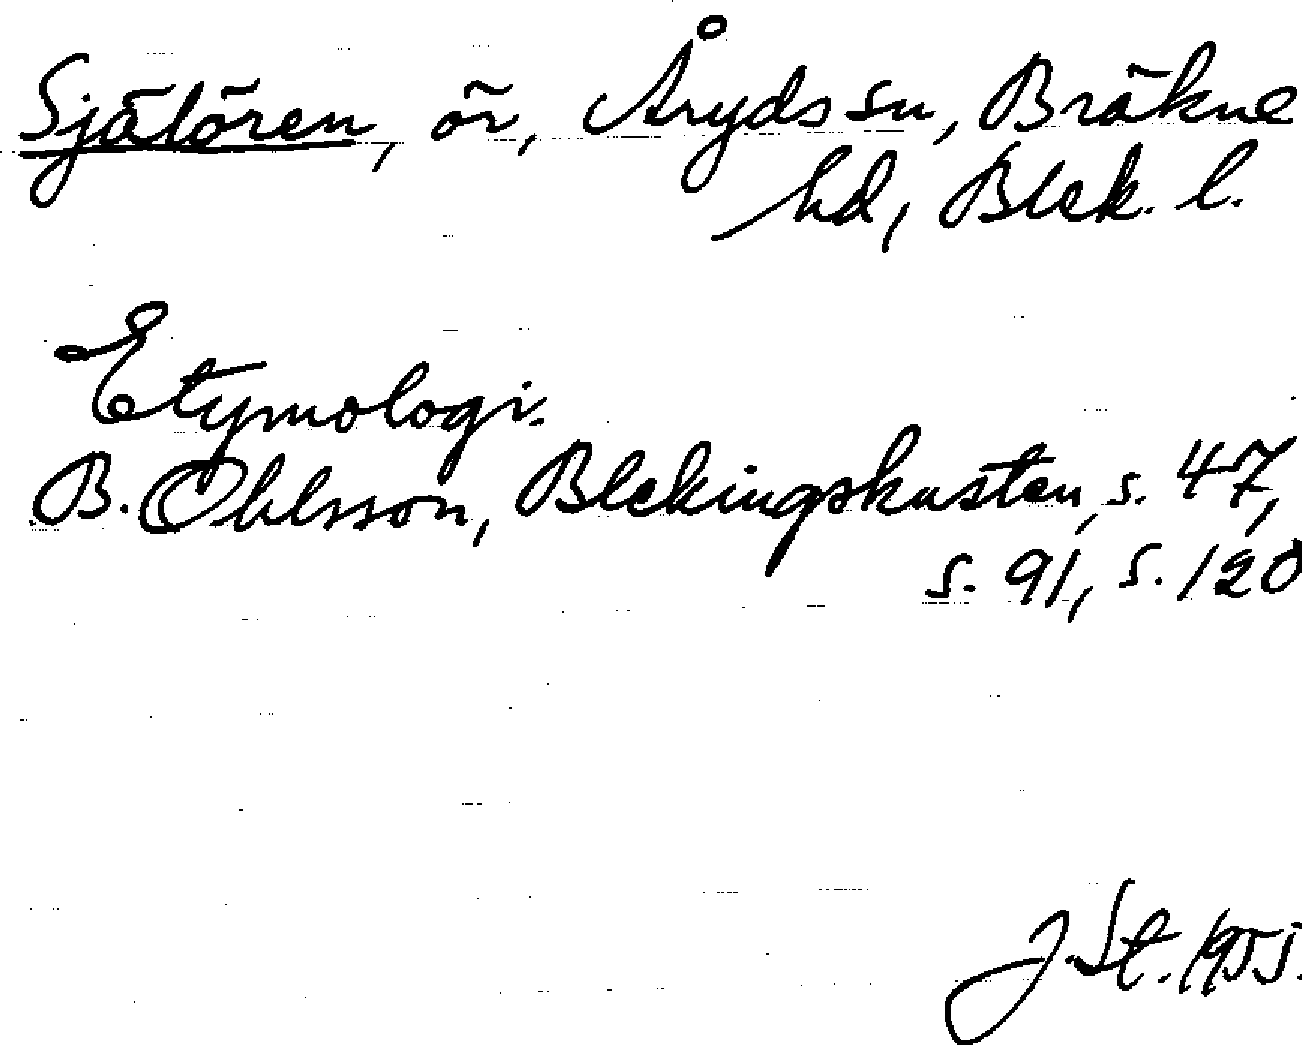 Själören, ör, Åryds sn, Bräkne
hd, Blek. l.
Etymologi.
B. Ohlsson, Blekingskusten, s. 47,
s. 91, s. 120
J. St. 1955.